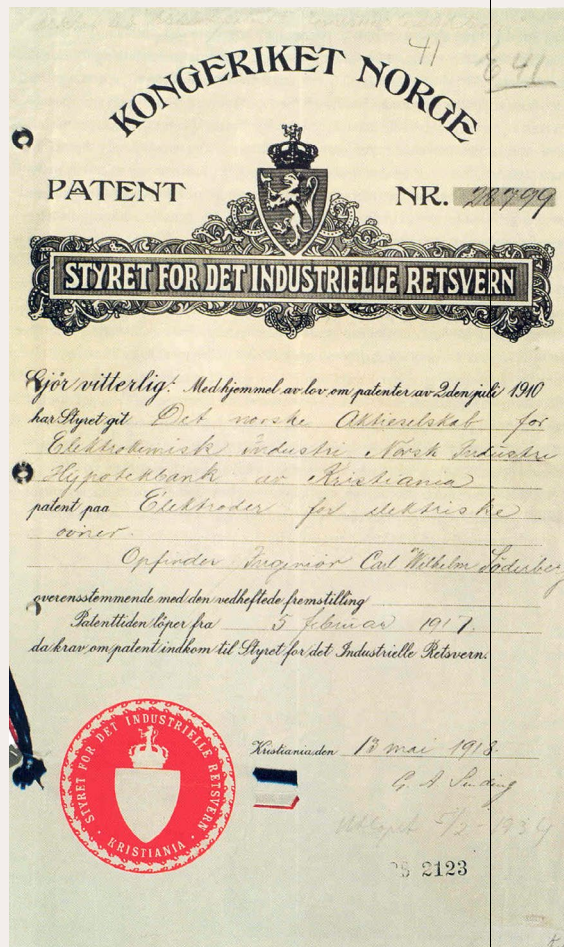 41
41
KONGERIKET NORGE
PATENT NR. 28799
STYRET FOR DET INDUSTRIELLE RETSVERN
Gjör vitterlig: Med hjemmel av lov om patenter av 2den juli 1910
har Styret git Det norske Aktieselskab for
Elektrokemisk Industri Norsk Industri
Hypotekbank av Kristiania
patent paa Elektroder for elektriske
ovner.
Opfinder Ingeniör Carl Wilhelm Söderberg
overensstemmende med den vedheftede fremstilling
Patenttiden löper fra 5 februar 1917.
da krav om patent indkom til Styret for det Industrielle Retsvern.
STYRET FOR DET INDUSTRIELLE RETSVERN
KRISTIANIA
Kristiania den 13 mai 1918.
G. A. Sinding
5/2-1934
2123